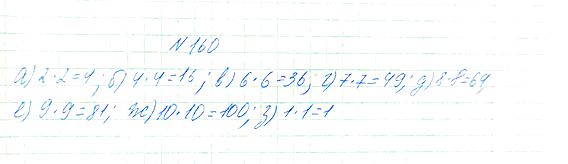 № 160
а) 2·2=4; б) 4·4=16; в) 6·6=36; г) 7·7=49; д) 8·8=64
е) 9·9=81; ж) 10·10=100; з) 1·1=1